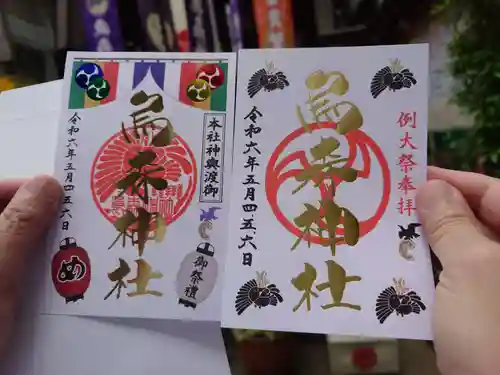 本社神輿渡御
烏森神社
令和六年五月四五六日
め
御祭禮
例大祭奉拝
烏森神社
令和六年五月四.五.六日